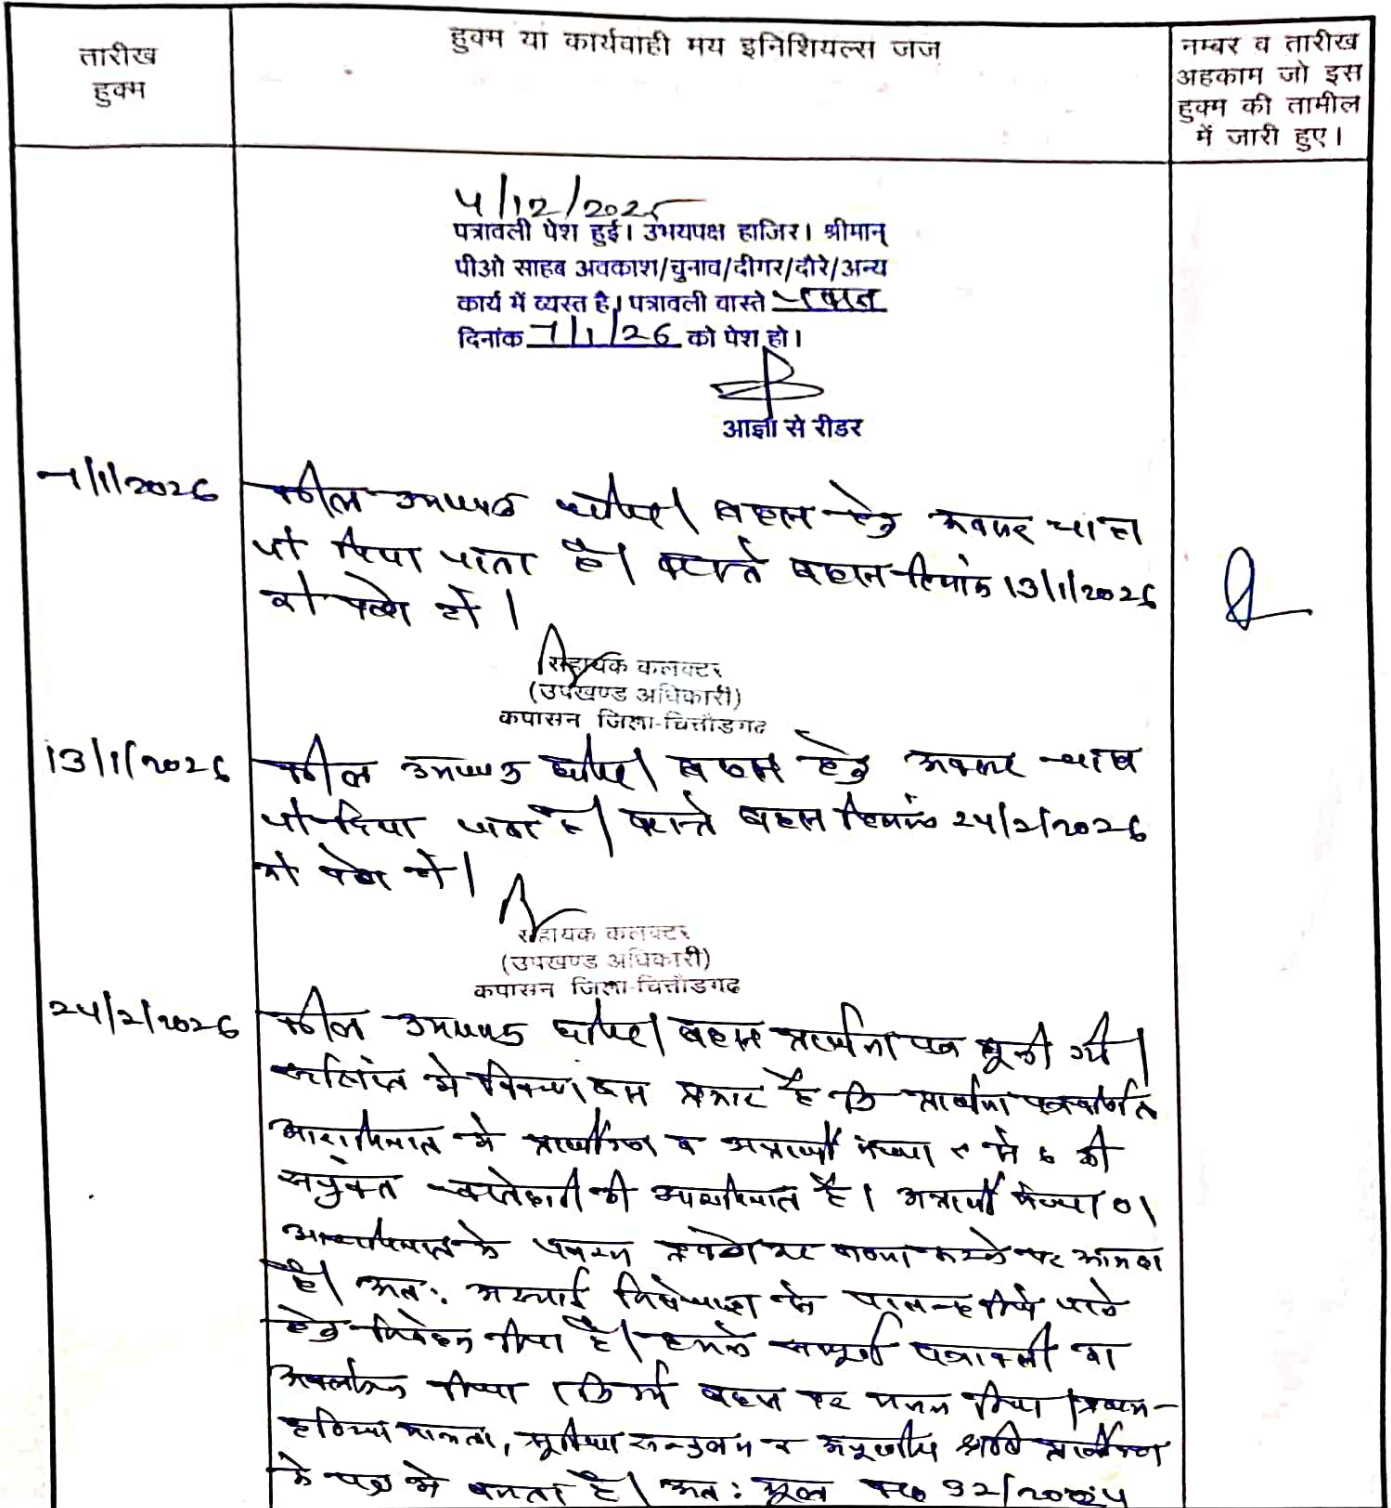 तारीख
हुक्म
हुक्म या कार्यवाही मय इनिशियल्स जज
नम्बर व तारीख
अहकाम जो इस
हुक्म की तामील
में जारी हुए।
4/12/2025
पत्रावली पेश हुई। उभयपक्ष हाजिर। श्रीमान्
पीओ साहब अवकाश/चुनाव/दीगर/दौरे/अन्य
कार्य में व्यस्त है। पत्रावली वास्ते बहस
दिनांक 7/1/26 को पेश हो।
आज्ञा से रीडर
7/1/2026
वकील उभयपक्ष उपस्थित। बहस हेतु अवसर चाहा
जो दिया जाता है। वास्ते बहस दिनांक 13/1/2026
को पेश हो।
सहायक कलक्टर
(उपखण्ड अधिकारी)
कपासन जिला-चित्तौडगढ
13/1/2026
वकील उभयपक्ष उपस्थित। बहस हेतु अवसर चाहा
जो दिया जाता है। वास्ते बहस दिनांक 24/2/2026
को पेश हो।
सहायक कलक्टर
(उपखण्ड अधिकारी)
कपासन जिला-चित्तौडगढ
24/2/2026
वकील उभयपक्ष उपस्थित। बहस प्रार्थना पत्र सुनी गयी।
संक्षिप्त में विवरण इस प्रकार है कि प्रार्थना पत्र वर्णित
आराजियात में प्रार्थीगण व अप्रार्थी संख्या 1 से 6 की
संयुक्त खातेदारी की आराजियात है। अप्रार्थी संख्या 01
आराजियात के पर कब्जा करने पर आमदा
है। अतः अस्थाई निषेधाज्ञा से पाबन्द किये जाने
हेतु निवेदन किया है। हमने सम्पूर्ण पत्रावली का
अवलोकन किया बहस पर मनन किया। प्रथम
दृष्टया मामला, सुविधा सन्तुलन व अपूरणीय क्षति प्रार्थीगण
के पक्ष में बनता है। अतः मूल वाद 92/2024